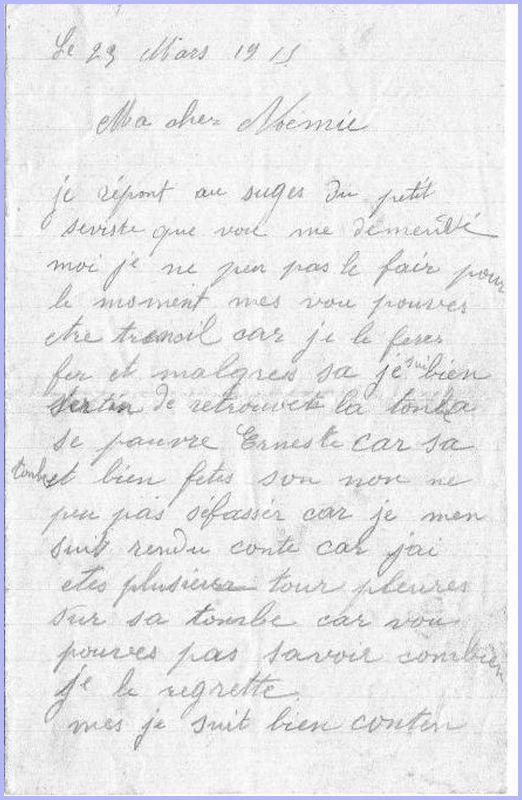 Le 23 Mars 1915
Ma cher Noemie
je répont au suges du petit
serviste que vou me demendé
moi je ne peu pas le fair pour
le moment mes vou pouves
etre trencil car je le ferer
fer et malgres sa je suit bien
sertin de retrouver la tonba
se pauvre Erneste car sa
tombe et bien fetes son non ne
peu pas séfassér car je men
suit rendu conte car jai
etes plusieur tour pleures
sur sa tombe car vou
pouves pas savoir combien
je le regrette
mes je suit bien conten